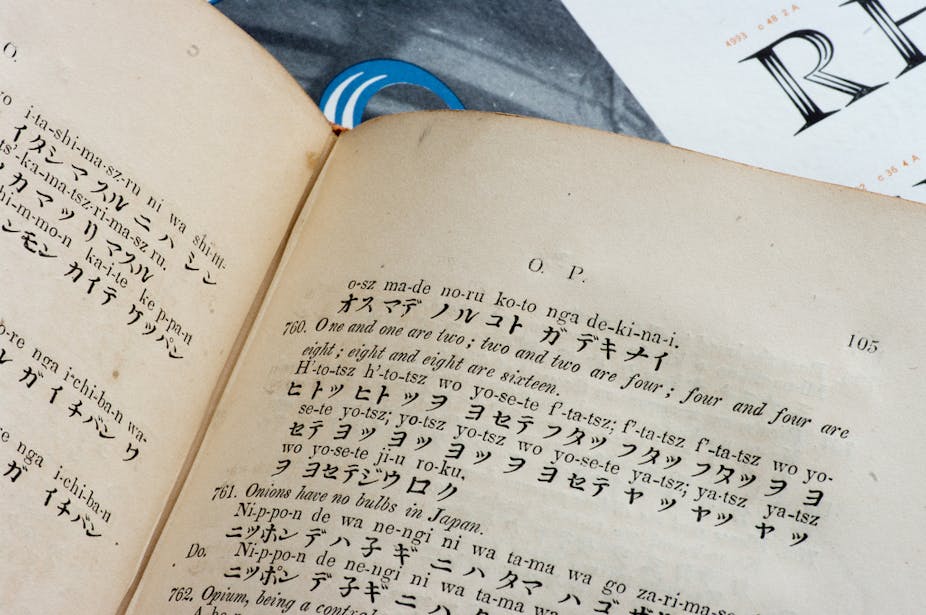 O.
i-ta-shi-ma-sz-ru ni wa shi-m-
イタシ マ スル ニ ハ シン
ts'-ka-ma-tsz-ri-ma-sz ru.
カ マ ツ リ マ スル
hi-m-mo-n ka-i-te ke p-pa-n
ンモン カイテ ケッパン
nga i-chi-ba-n wa-
ガ イ チバン ワ
nga i-chi-ba-n
ガ イ チバン
O. P.
105
o-sz ma-de no-ru ko-to nga de-ki-na-i.
オス マデ ノル コト ガ デキ ナイ
760. One and one are two; two and two are four; four and four are
eight; eight and eight are sixteen.
H'-to-tsz h'-to-tsz wo yo-se-te f'-ta-tsz; f'-ta-tsz f'-ta-tsz wo yo-
ヒトツ ヒトツ ヲ ヨセテ フタツ フタツ フタツ ヲ ヨ
se-te yo-tsz; yo-tsz yo-tsz wo yo-se-te ya-tsz; ya-tsz ya-tsz
セテ ヨツ ヨツ ヨツ ヲ ヨセテ ヤツ ヤツ ヤツ
wo yo-se-te ji-u ro-ku.
ヲ ヨセテ ジウ ロク
761. Onions have no bulbs in Japan.
Ni-p-po-n de wa ne-ngi ni wa ta-ma wa go za-ri-ma-se
ニッポン デ ハ 子ギ ニ ハ タマ ハ ゴ
Do. Ni-p-po-n de ne-ngi ni wa ta-ma wa
ニッポン デ 子ギ ニ ハ
762. Opium, being a
4993 c 48 2 A
RH
c 36 4 A